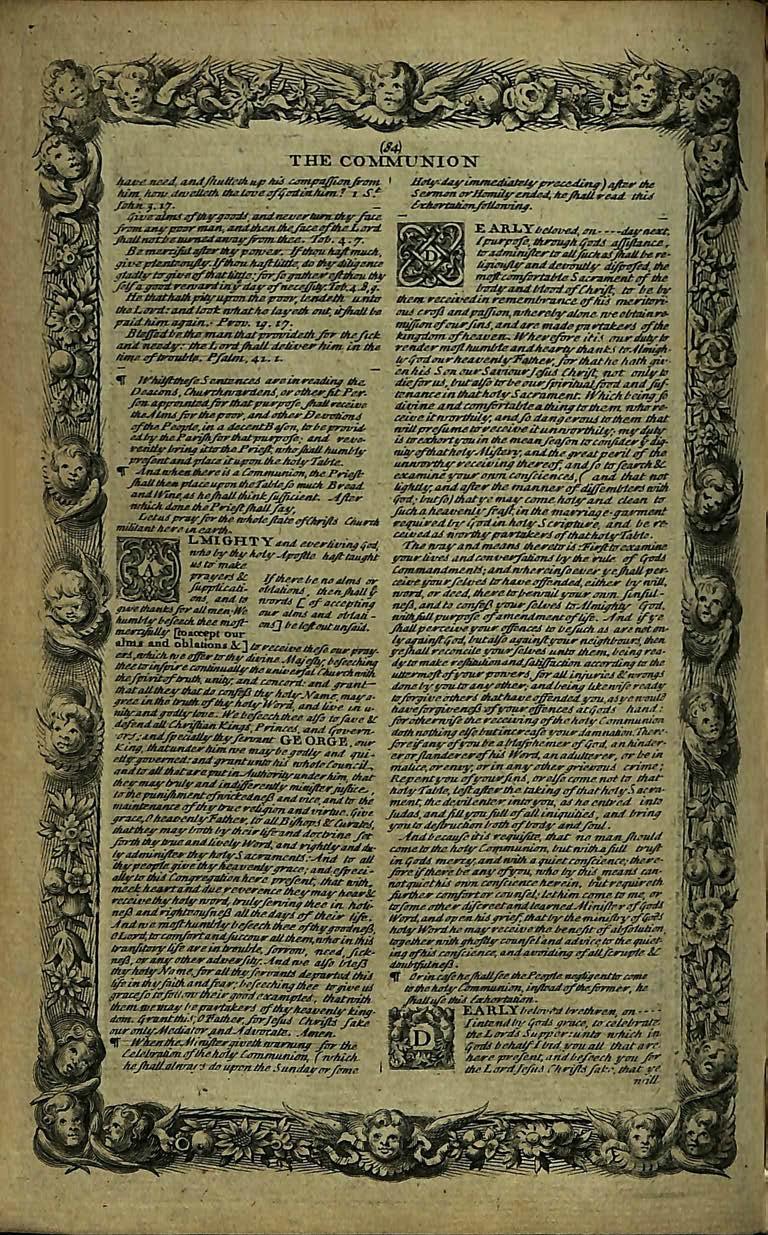 (84)
THE COMMUNION
have need, and shutteth up his compassion from
him, how dwelleth the love of God in him? 1 St.
John 3. 17.
Give alms of thy goods, and never turn thy face
from any poor man, and then the face of the Lord
shall not be turned away from thee. Tob. 4. 7.
Be merciful after thy power. If thou hast much,
give plenteously: if thou hast little, do thy diligence
gladly to give of that little: for so gather est thou thy
self a good reward in ẏ day of necessity. Tob. 4. 8, 9.
He that hath pity upon the poor, lendeth unto
the Lord: and look what he layeth out, it shall be
paid him again. Prov. 19. 17.
Blessed be the man that provideth for the sick
and needy: the Lord shall deliver him in the
time of trouble. Psalm, 41. 1.
¶ Whilst these Sentences are in reading the
Deacons, Churchwardens, or other fit Per-
son appointed for that purpose, shall receive
the Alms for the poor, and other Devotions
of the People, in a decent Bason, to be provid-
ed by the Parish for that purpose; and reve-
rently bring it to the Priest, who shall humbly
present and place it upon the holy Table.
¶ And when there is a Communion, the Priest
shall then place upon the Table so much Bread
and Wine, as he shall think sufficient. After
which done the Priest shall say,
Let us pray for the whole state of Christs Church
militant here in earth.
ALMIGHTY and everliving God,
who by thy holy Apostle hast taught
us to make
prayers &
supplicati-
ons, and to
give thanks for all men; We
humbly beseech thee most
mercifully [to accept our
alms and oblations &]
If there be no alms or
oblations, then shall ẏ
words [of accepting
our alms and oblati-
ons] be left out unsaid.
to receive these our pray-
ers, which we offer to thy divine Majesty, beseeching
thee to inspire continually the universal Church with
the spirit of truth, unity, and concord: and grant
that all they that do confess thy holy Name, may a-
gree in the truth of thy holy Word, and live in u-
nity, and godly love. We beseech thee also to save &
defend all Christian Kings, Princes, and Govern-
ors; and specially thy servant GEORGE, our
King, that under him we may be godly and qui-
etly governed: and grant unto his whole Council,
and to all that are put in Authority under him, that
they may truly and indifferently minister justice,
to the punishment of wickedness and vice, and to the
maintenance of thy true religion and virtue. Give
grace, O heavenly Father, to all Bishops & Curates,
that they may both by their life and doctrine set
forth thy true and lively Word, and rightly and du-
ly administer thy holy Sacraments: And to all
thy people give thy heavenly grace; and especi-
ally to this Congregation here present, that with
meek heart and due reverence they may hear &
receive thy holy word, truly serving thee in holi-
ness and righteousness all the days of their life.
And we most humbly beseech thee of thy goodness,
O Lord, to comfort and succour all them, who in this
transitory life are in trouble, sorrow, need, sick-
ness, or any other adversity. And we also bless
thy holy Name, for all thy servants departed this
life in thy faith and fear; beseeching thee to give us
grace so to follow their good examples, that with
them we may be partakers of thy heavenly king-
dom. Grant this, O Father, for Jesus Christs sake
our only Mediator and Advocate. Amen.
¶ When the Minister giveth warning for the
Celebration of the holy Communion, (which
he shall always do upon the Sunday or some
Holy-day immediately preceding) after the
Sermon or Homily ended, he shall read this
Exhortation following.
DEARLY beloved, on ---- day next,
I purpose, through Gods assistance,
to administer to all such as shall be re-
ligiously and devoutly disposed, the
most comfortable Sacrament of the
body and blood of Christ; to be by
them received in remembrance of his meritori-
ous cross and passion, whereby alone we obtain re-
mission of our sins, and are made partakers of the
kingdom of heaven. Wherefore it is our duty to
render most humble and hearty thanks to Almigh-
ty God our heavenly Father, for that he hath giv-
en his Son our Saviour Jesus Christ, not only to
die for us, but also to be our spiritual food and sus-
tenance in that holy Sacrament. Which being so
divine and comfortable a thing to them who re-
ceive it worthily, and so dangerous to them that
will presume to receive it unworthily; my duty
is to exhort you in the mean season to consider ẏ dig-
nity of that holy Mistery, and the great peril of the
unworthy receiving thereof; and so to search &
examine your own consciences, (and that not
lightly, and after the manner of dissemblers with
God; but so) that ye may come holy and clean to
such a heavenly feast, in the marriage-garment
required by God in holy Scripture, and be re-
ceived as worthy partakers of that holy Table.
The way and means thereto is: First to examine
your lives and conversations by the rule of Gods
Commandments; and wherein soever ye shall per-
ceive your selves to have offended, either by will,
word, or deed, there to bewail your own sinful-
ness, and to confess your selves to Almighty God,
with full purpose of amendment of life. And if ye
shall perceive your offences to be such as are not on-
ly against God, but also against your neighbours, then
ye shall reconcile your selves unto them, being rea-
dy to make restitution and satisfaction according to the
uttermost of your powers, for all injuries & wrongs
done by you to any other; and being likewise ready
to forgive others that have offended you, as ye would
have forgiveness of your offences at Gods hand:
for otherwise the receiving of the holy Communion
doth nothing else but increase your damnation. There-
fore if any of you be a blasphemer of God, an hinder-
er or slanderer of his Word, an adulterer, or be in
malice, or envy, or in any other grievous crime;
Repent you of your sins, or else come not to that
holy Table, lest after the taking of that holy Sacra-
ment, the devil enter into you, as he entred into
Judas, and fill you full of all iniquities, and bring
you to destruction both of body and soul.
And because it is requisite, that no man should
come to the holy Communion, but with a full trust
in Gods mercy, and with a quiet conscience; there-
fore if there be any of you, who by this means can-
not quiet his own conscience herein, but requireth
further comfort or counsel; let him come to me, or
to some other discreet and learned Minister of Gods
Word, and open his grief, that by the ministry of Gods
holy Word he may receive the benefit of absolution,
together with ghostly counsel and advice, to the quiet-
ing of his conscience, and avoiding of all scruple &
doubtfulness.
¶ Or in case he shall see the People negligent to come
to the holy Communion, instead of the former, he
shall use this Exhortation.
DEARLY beloved brethren, on ----
I intend by Gods grace, to celebrate
the Lords Supper: unto which in
Gods behalf I bid you all that are
here present, and beseech you for
the Lord Jesus Christs sake, that ye
will